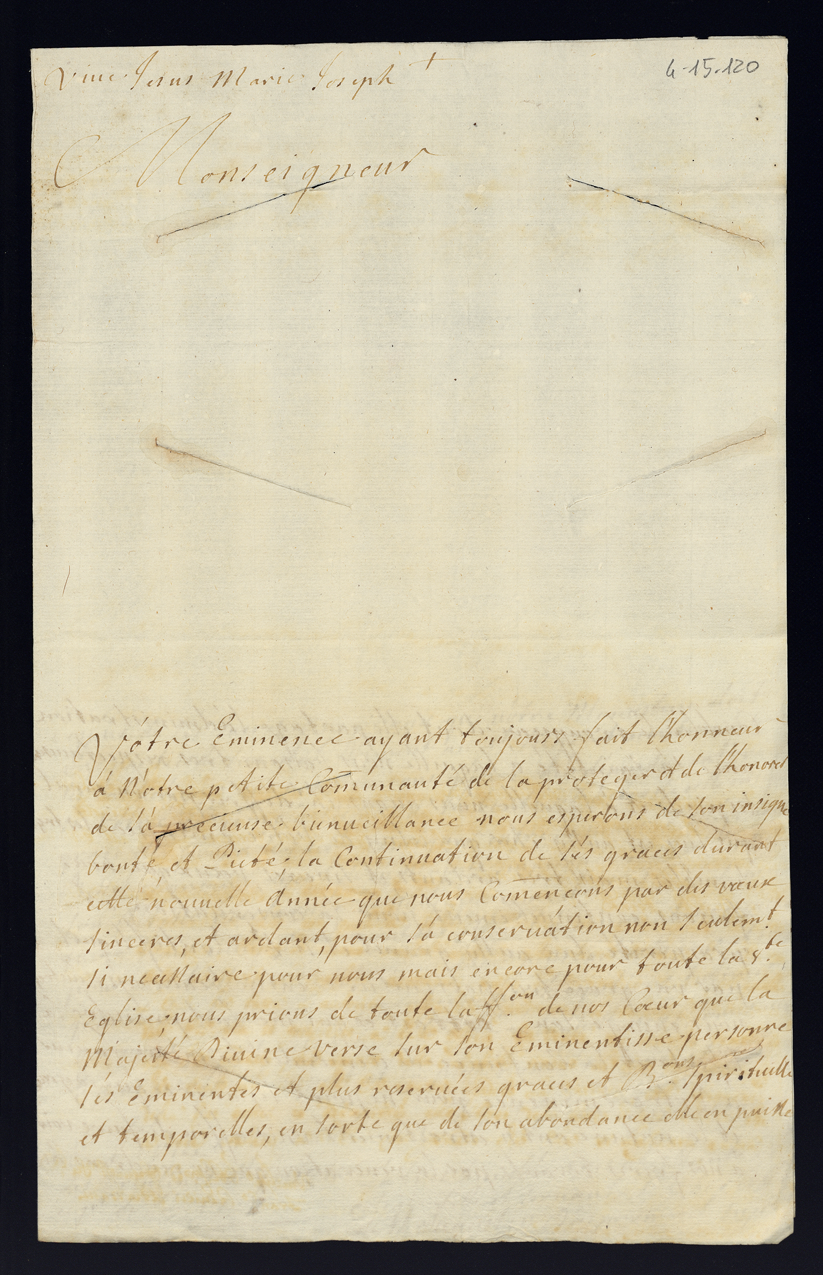 Vive Jesus Marie Joseph +
4-15.120
Monseigneur
Votre Eminence ayant toujours fait l'honneur
à Notre petite Com̄unauté de la proteger et de l'honorer
de sa precieuse bienveillance nous esperons de son insigne
bonté, et Pieté, la Continuation de ses graces durant
cette nouvelle Année que nous Com̄ençons par des vœux
sinceres, et ardant, pour sa conservation non seulem.t
si necessaire pour nous mais encore pour toute la S.te
Eglise, nous prions de toute laff.on de nos Cœur que la
Majesté Divine verse sur son Eminentisse personne
ses Eminentes et plus reservées graces et B.ons spirituelle
et temporelles, en sorte que de son abondance elle en puisse